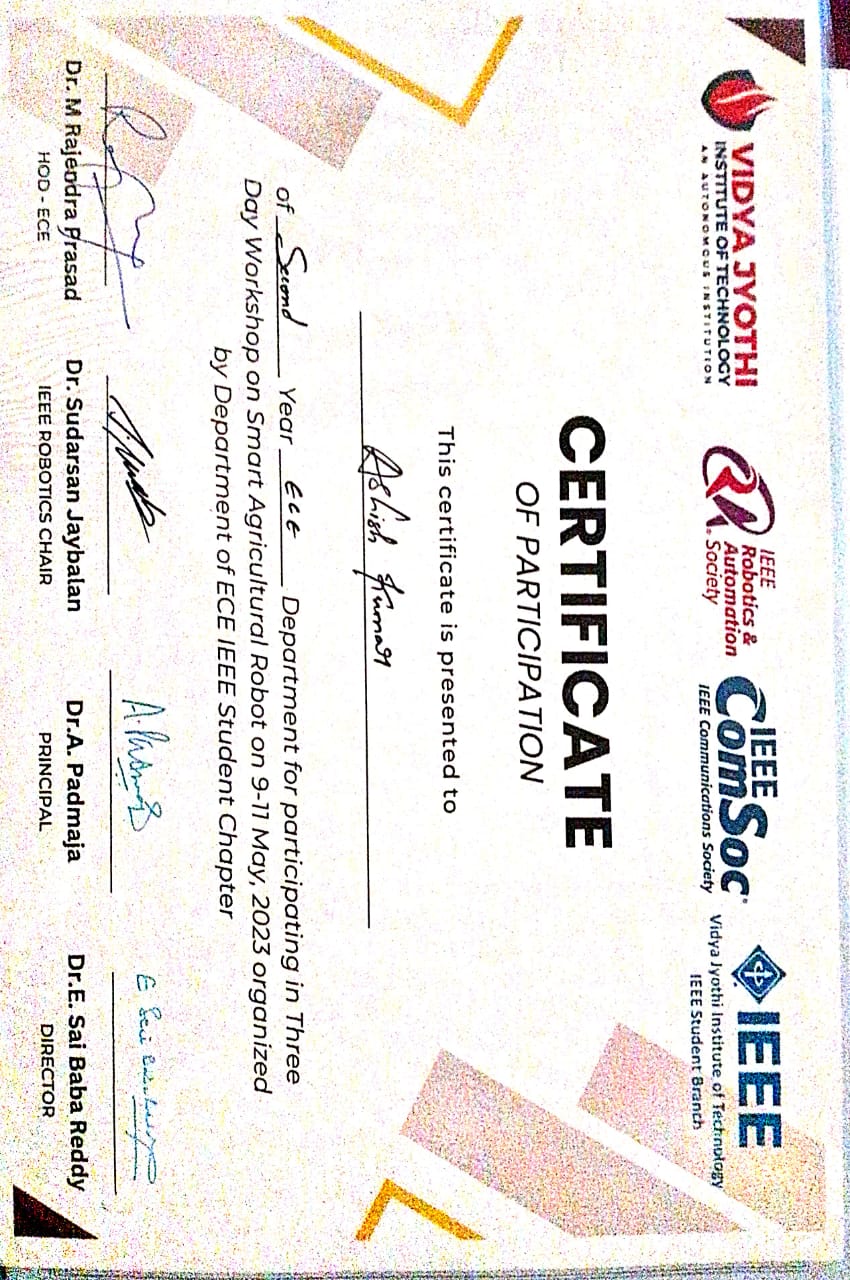 VIDYA JYOTHI
INSTITUTE OF TECHNOLOGY
AN AUTONOMOUS INSTITUTION
IEEE
Robotics &
Automation
Society
IEEE
ComSoc
IEEE Communications Society
IEEE
Vidya Jyothi Institute of Technology
IEEE Student Branch
CERTIFICATE
OF PARTICIPATION
This certificate is presented to
Ashish Kumar
of Second Year Ece Department for participating in Three
Day Workshop on Smart Agricultural Robot on 9-11 May, 2023 organized
by Department of ECE IEEE Student Chapter
Dr. M Rajendra Prasad
HOD - ECE
Dr. Sudarsan Jaybalan
IEEE ROBOTICS CHAIR
Dr.A. Padmaja
PRINCIPAL
Dr.E. Sai Baba Reddy
DIRECTOR